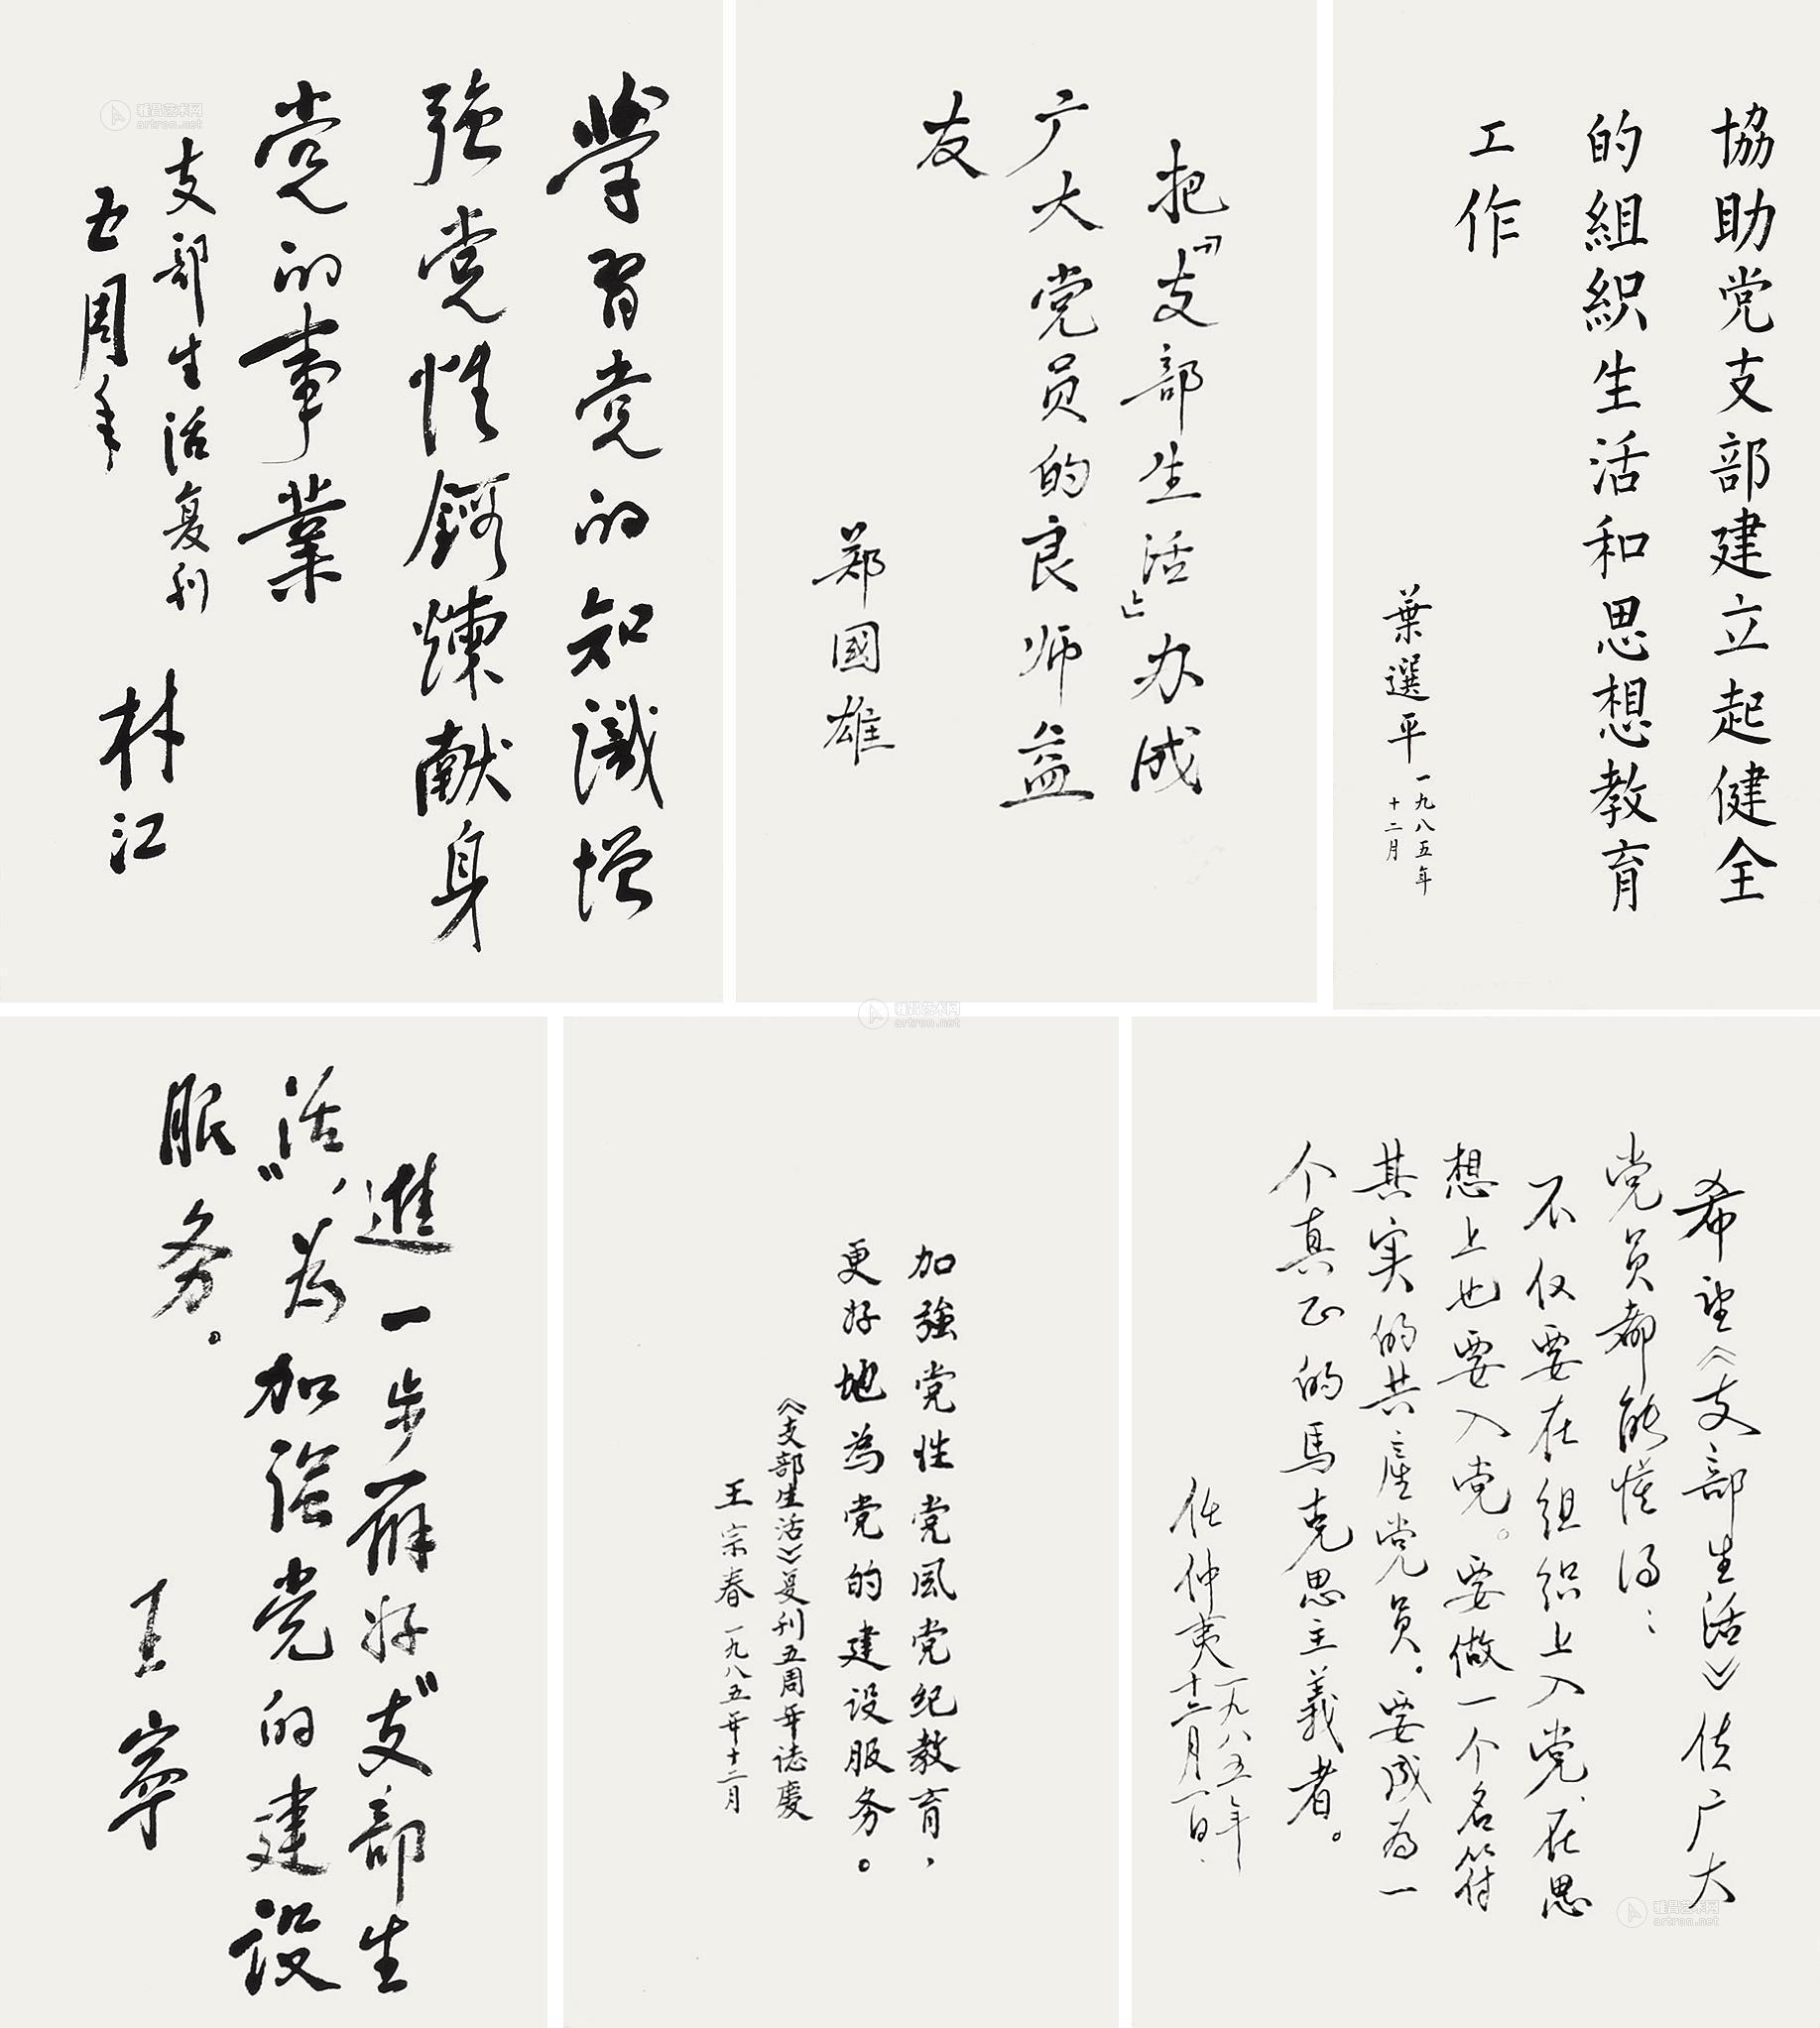 協助党支部建立起健全
的組织生活和思想教育
工作
葉選平
一九八五年
十二月
把『支部生活』办成
广大党员的良师益
友
郑國雄
學習党的知識增
強党性鍛煉献身
党的事業
支部生活复刊
五周年
林江
希望《支部生活》使广大
党员都能懂得：
不仅要在组织上入党，在思
想上也要入党。要做一个名符
其实的共產党员。要成为一
个真正的馬克思主義者。
任仲夷
一九八五年
十二月一日.
加強党性党风党纪教育，
更好地為党的建设服务。
《支部生活》复刊五周年誌慶
王宗春 一九八五年十二月
進一步辦好“支部生
活”，為加强党的建设
服务。
王寧
雅昌艺术网
artron.net
雅昌艺术网
artron.net
雅昌艺术网
artron.net